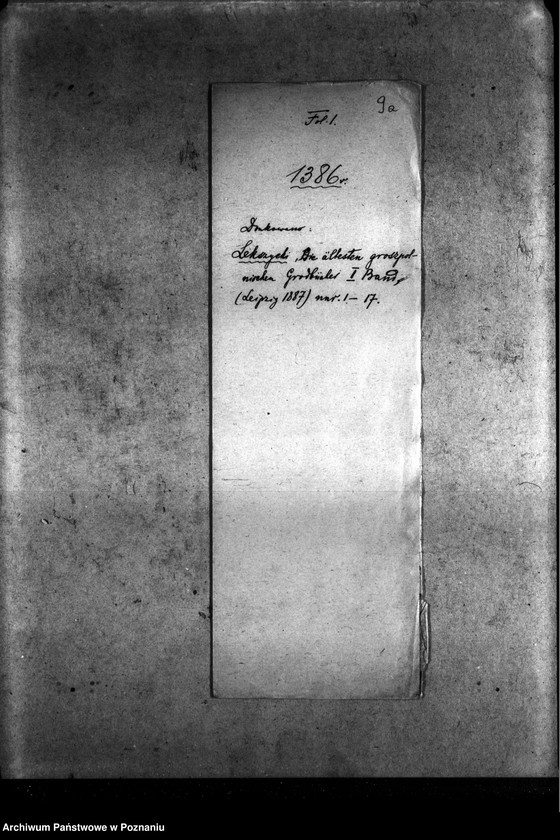 9a
Fol. 1.
1386 r.
Drukowane:
Lekszycki, Die ältesten grosspol-
nischen Grodbücher I Band,
(Leipzig 1887) nnr. 1 – 17.
Archiwum Państwowe w Poznaniu